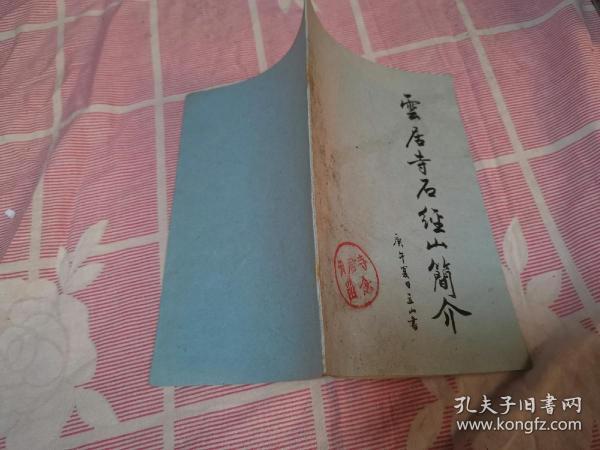 雲居寺石經山簡介
庚午夏日立山書
孔夫子旧书网
www.kongfz.com